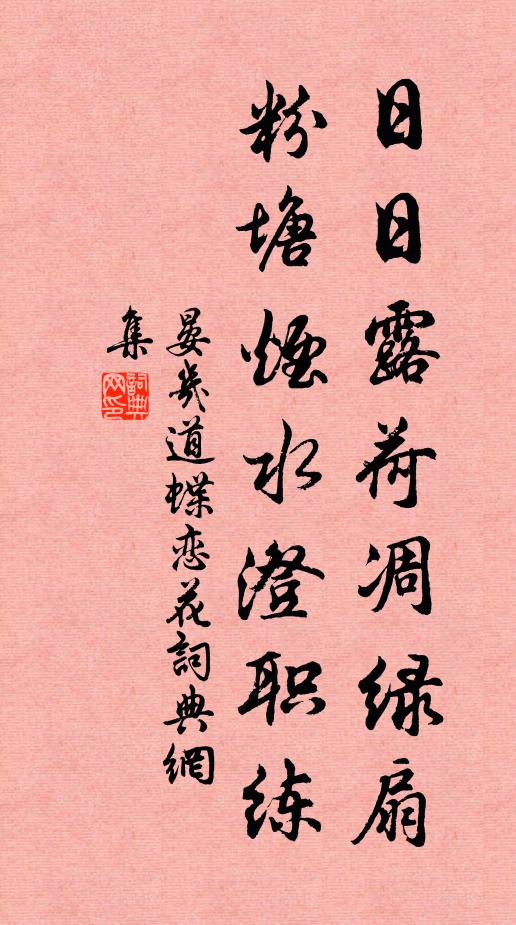 日日露荷凋绿扇
粉塘煙水澄职练
晏幾道蝶恋花詞典網
集
詞典網印